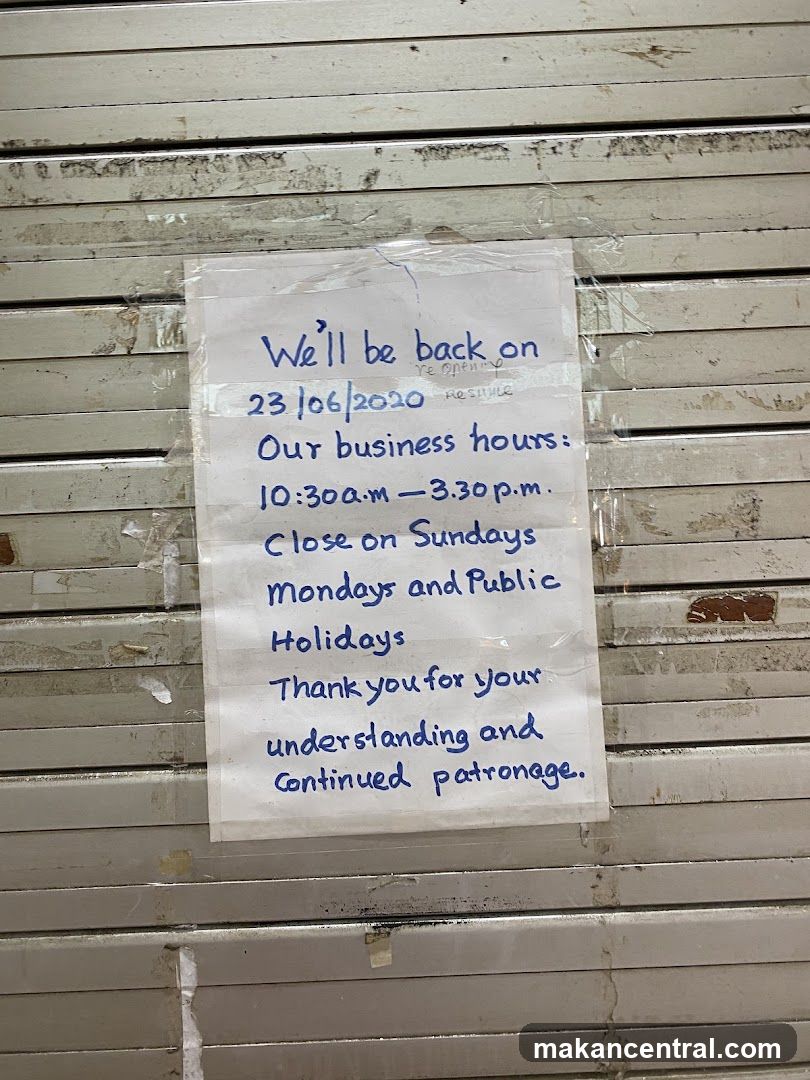 We'll be back on
re opening
23/06/2020 Resume
Our business hours:
10:30a.m — 3.30p.m.
Close on Sundays
Mondays and Public
Holidays
Thank you for your
understanding and
Continued patronage.
makancentral.com